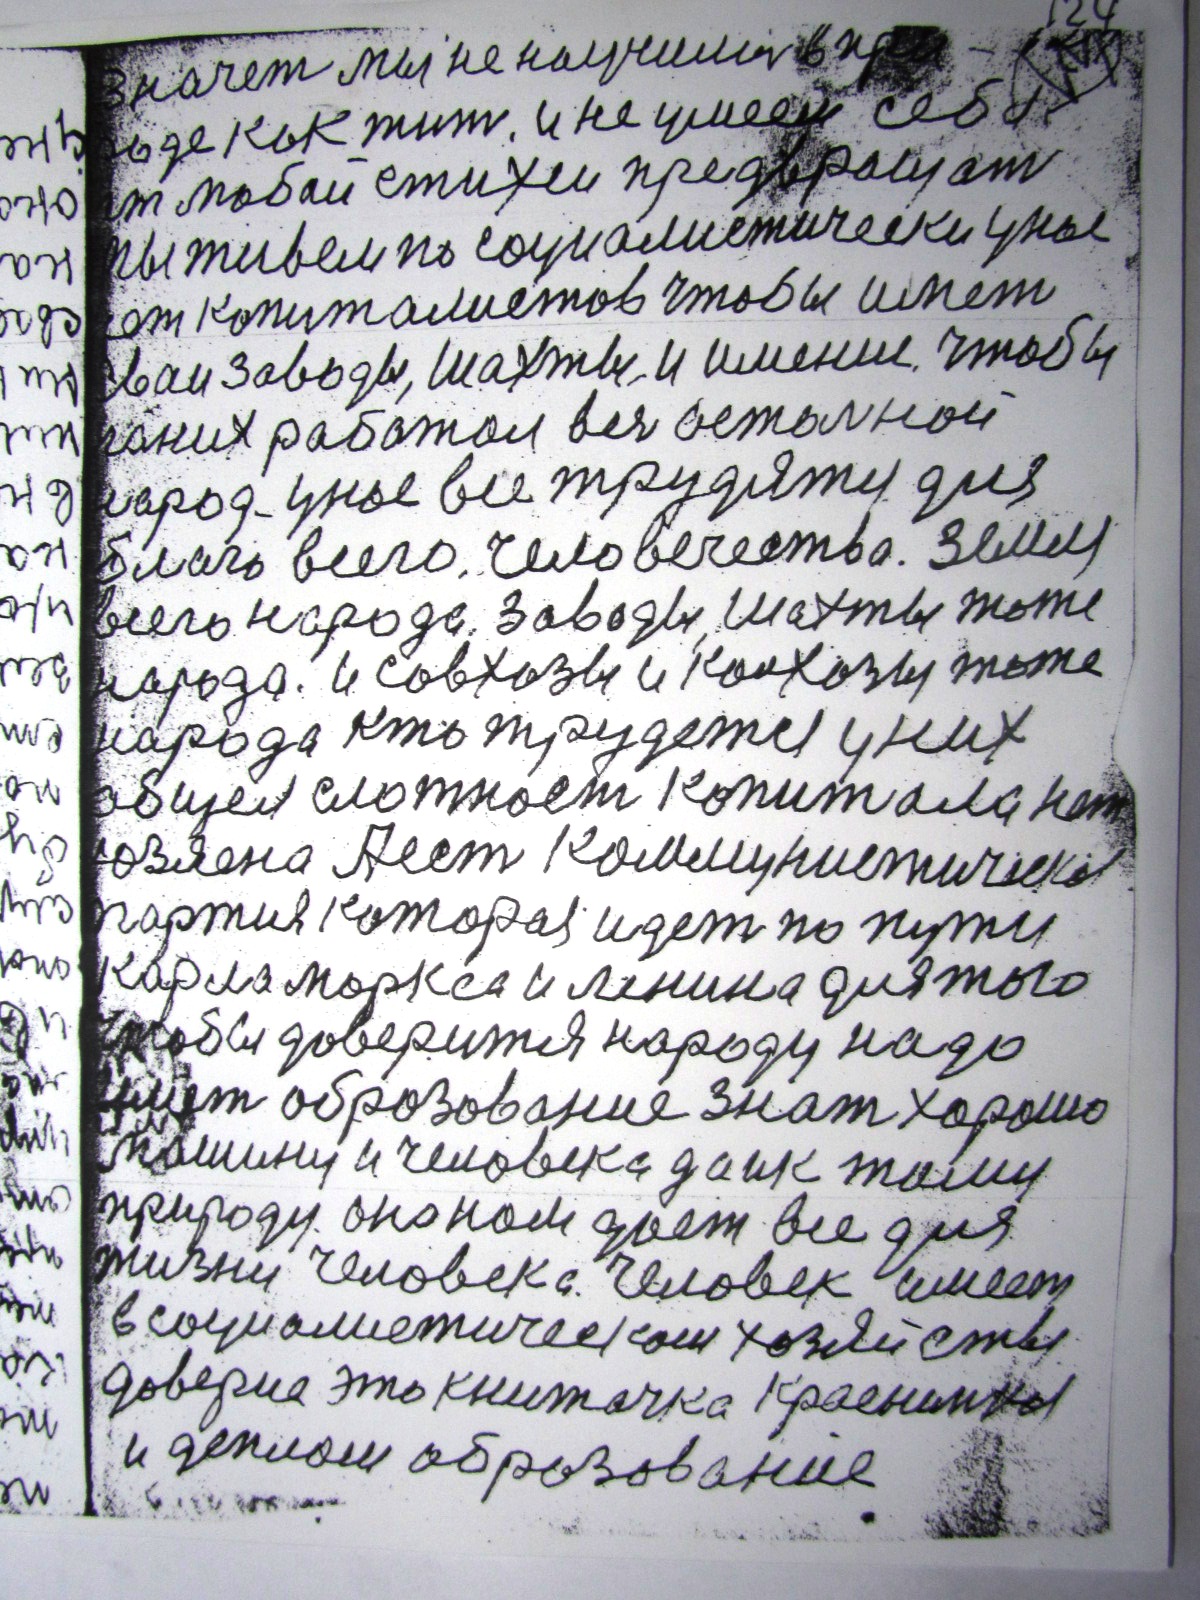 124
значет мы не научились в при-
роде как жит. и не умеем себя
от любой стихеи предвращат
мы живем по социалистически унас
нет копиталистов чтобы имет
сваи заводы, шахты, и имение. чтобы
наних работал вся осталной
народ. унас все трудяжи для
благо всего. человечества. земля
всего народа. заводы, шахты тоже
народа. и совхозы и колхозы тоже
народа кто трудется у них
общея сложност копитала нет
хозяена Аест Коммунистическоя
партия которая идет по пути
карла моркса и ленина для того
чтобы доверится народу надо
имет оброзование знат хорошо
машину и человека да ик тому
природу. она нам дает все для
жизни человека. Человек имеет
в социалистическом хозяйствы
доверие это книжачка красния
и деплом оброзование